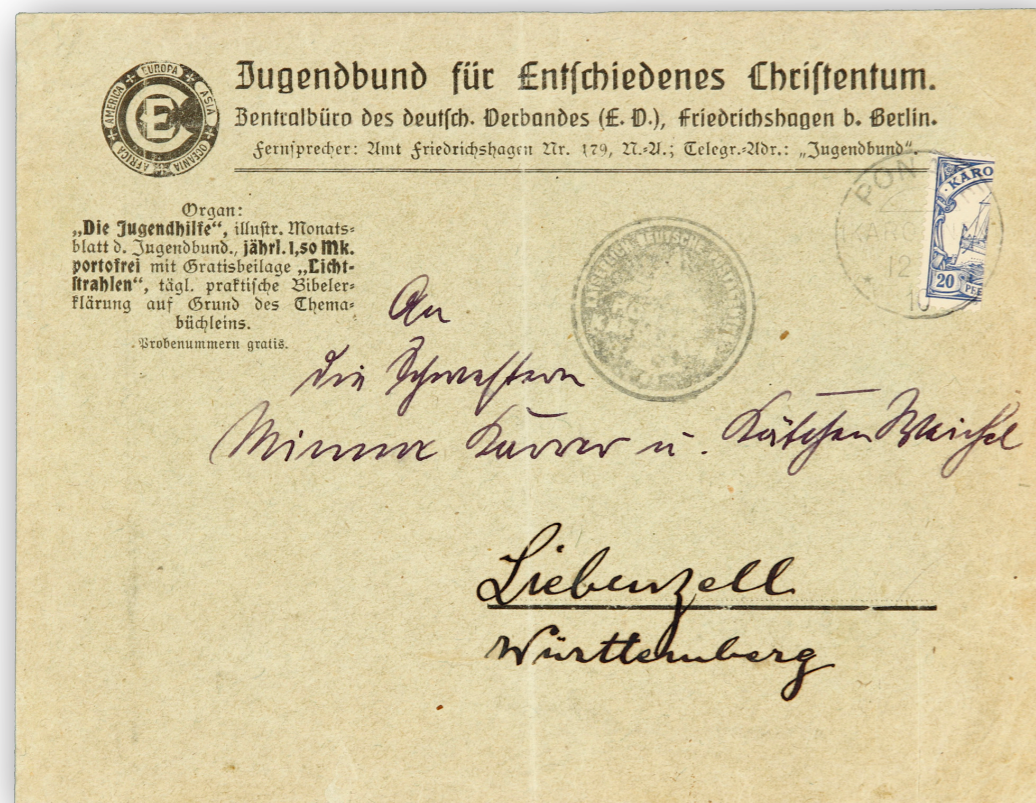 EUROPA
ASIA
OCEANIA
AFRICA
AMERICA
CE
Jugendbund für Entschiedenes Christentum.
Zentralbüro des deutsch. Verbandes (E. V.), Friedrichshagen b. Berlin.
Fernsprecher: Amt Friedrichshagen Nr. 179, N.-A.; Telegr.-Adr.: „Jugendbund“.
Organ:
„Die Jugendhilfe“, illustr. Monats-
blatt d. Jugendbund., jährl. 1,50 Mk.
portofrei mit Gratisbeilage „Licht-
strahlen“, tägl. praktische Bibeler-
klärung auf Grund des Thema-
büchleins.
Probenummern gratis.
PON
KAR
12
10
KARO
20 PFE
KAISERLICH DEUTSCHES
An
die Schwestern
Minna Karrer u. Kätchen Weichel
Liebenzell
Württemberg